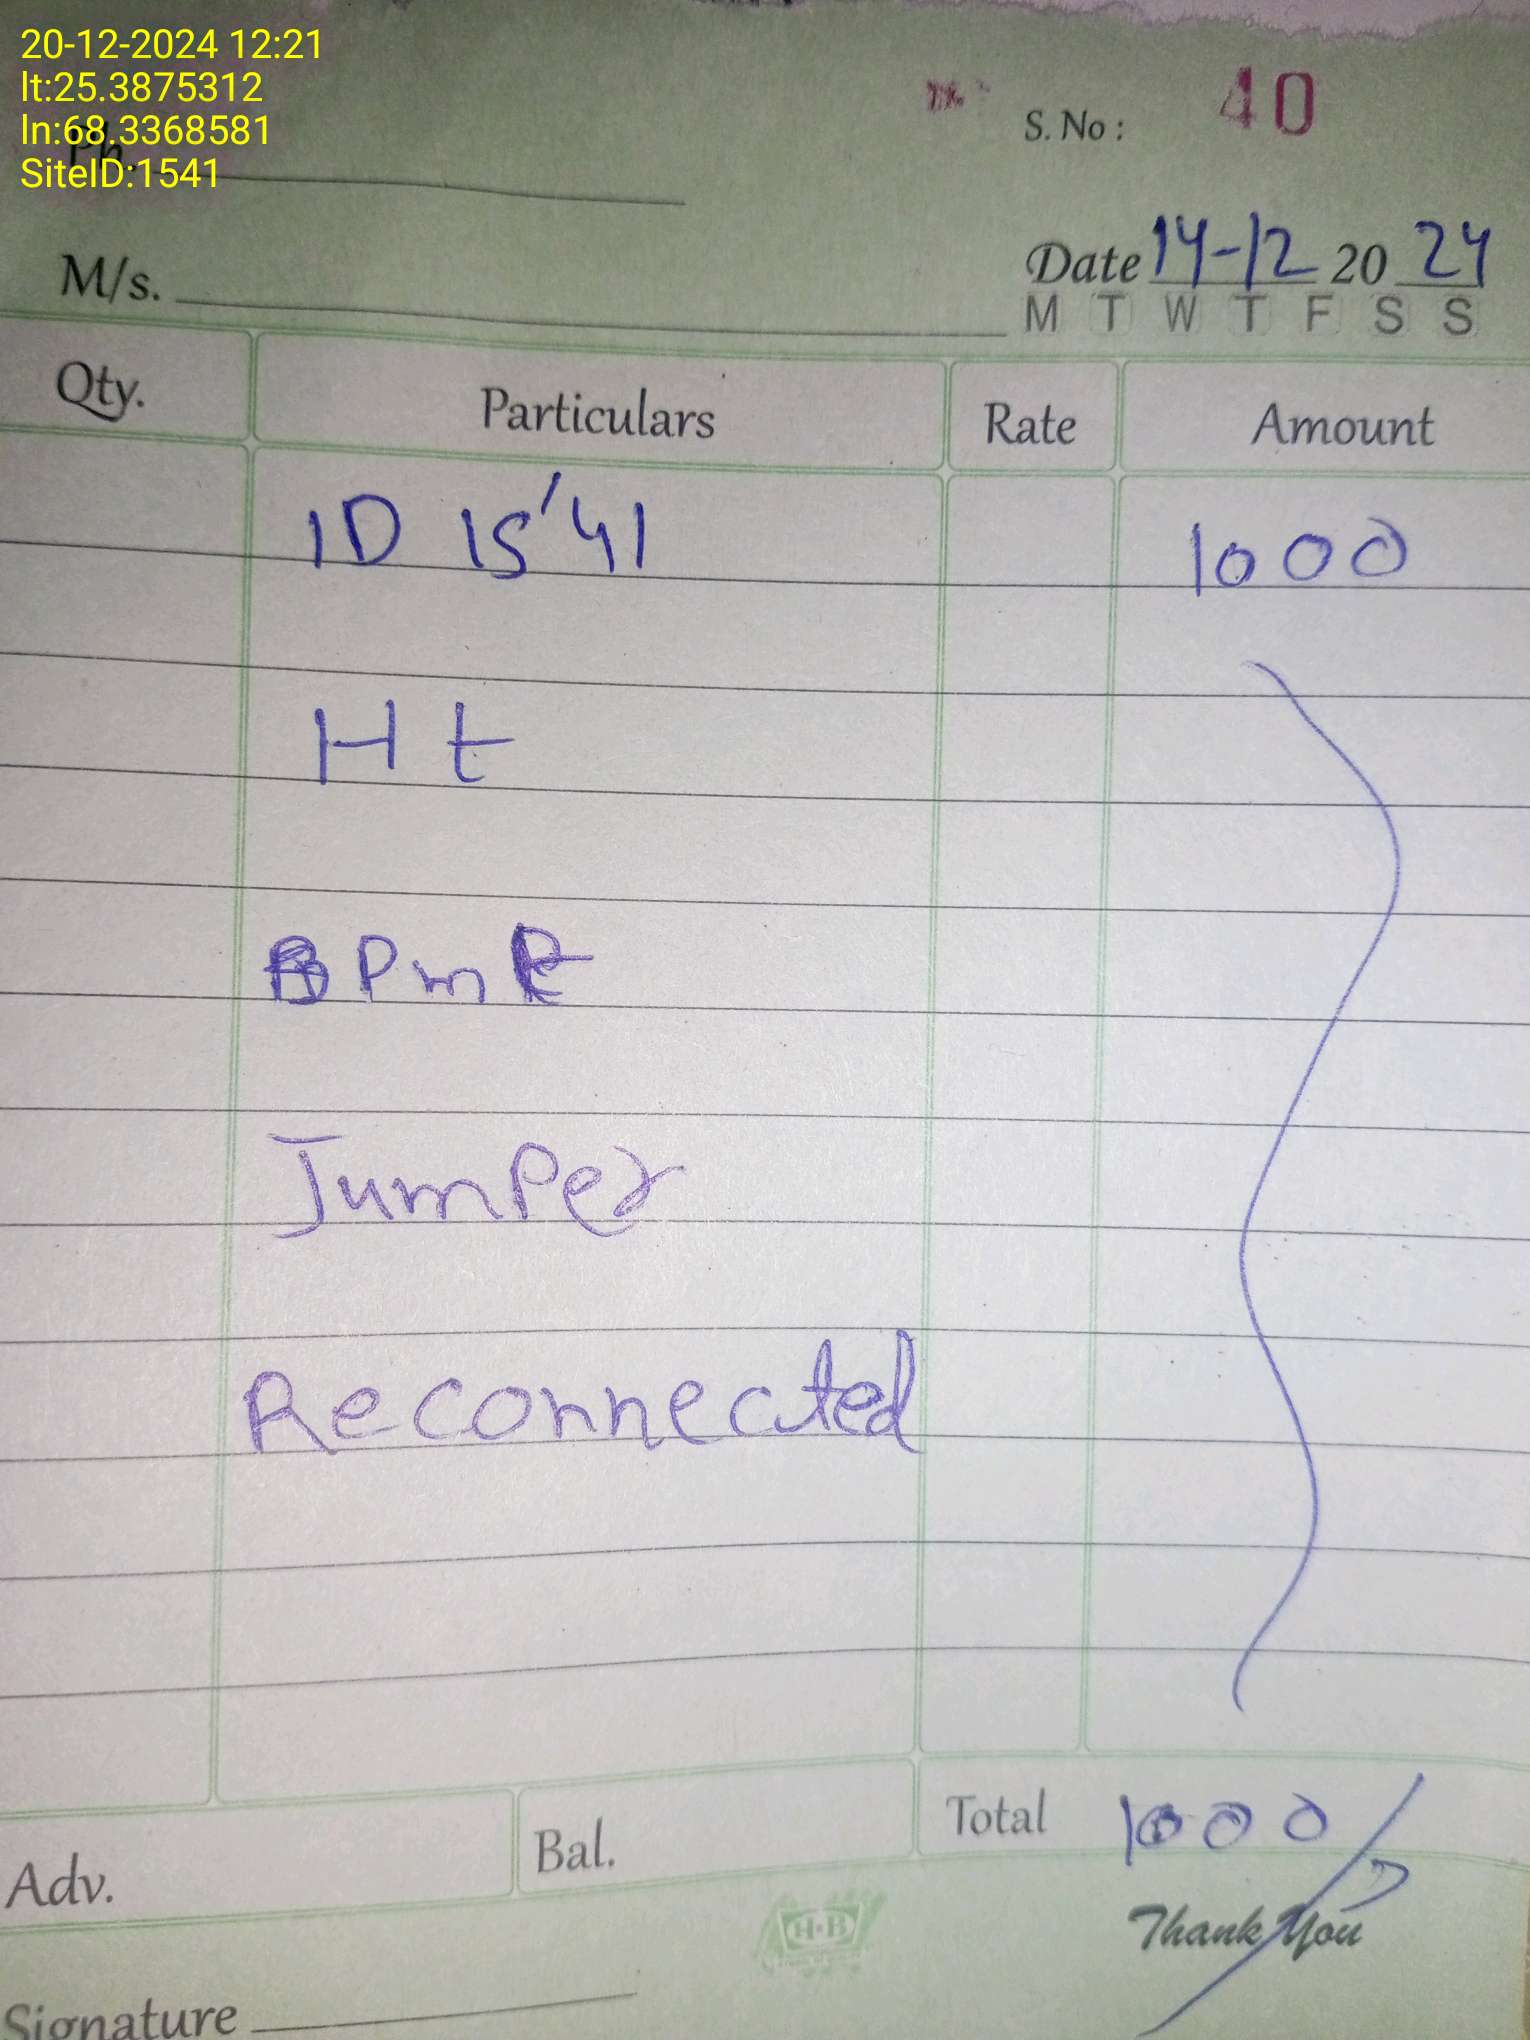 20-12-2024 12:21
lt:25.3875312
ln:68.3368581
SiteID:1541
Ph.
S. No : 40
Date 14-12 20 24
M/s.
M T W T F S S
Qty. Particulars Rate Amount
ID 15'41 1000
Ht
PmR
Jumper
Reconnected
Total 1000/
Adv. Bal.
H-B
Thank You
Signature